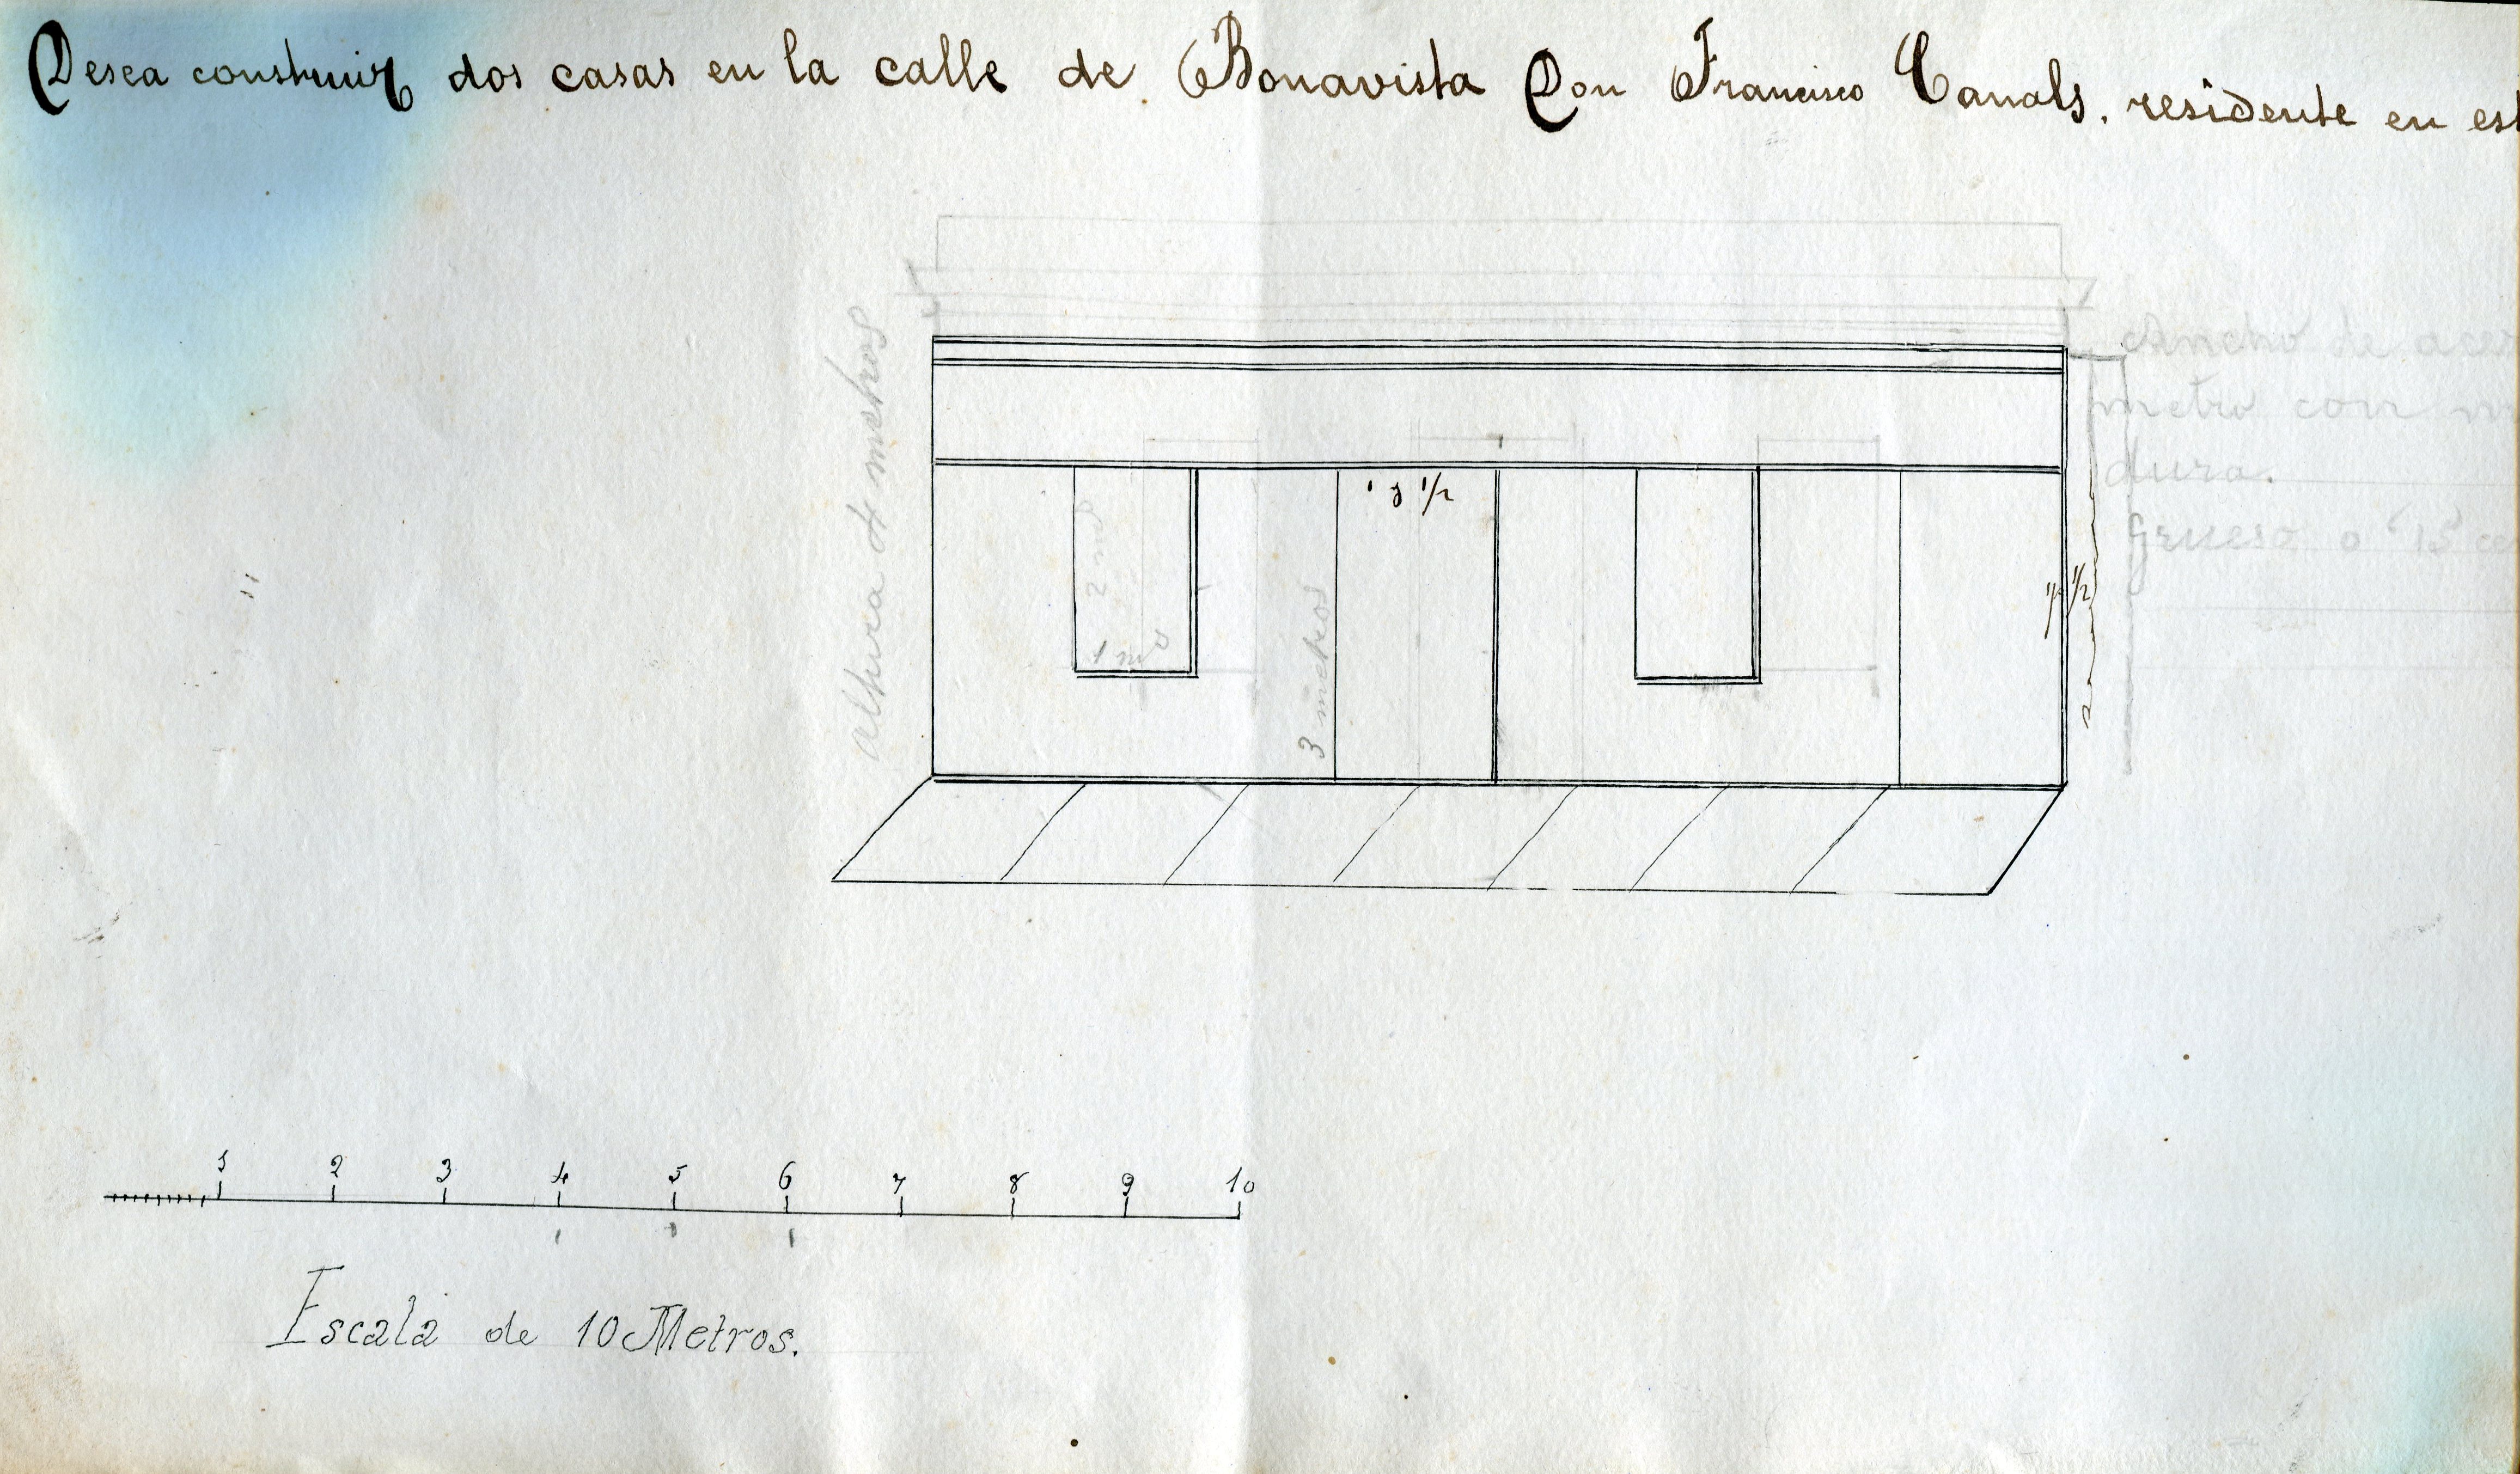 Desea construir dos casas en la calle de Bonavista Don Francisco Canals. residente en est
Ancho de acer
metro con
dura.
Grueso 0'15 ce
altura 4 metros
2 m
1 m
3 metros
1/2
1/2
1 2 3 4 5 6 7 8 9 10
Escala de 10 Metros.